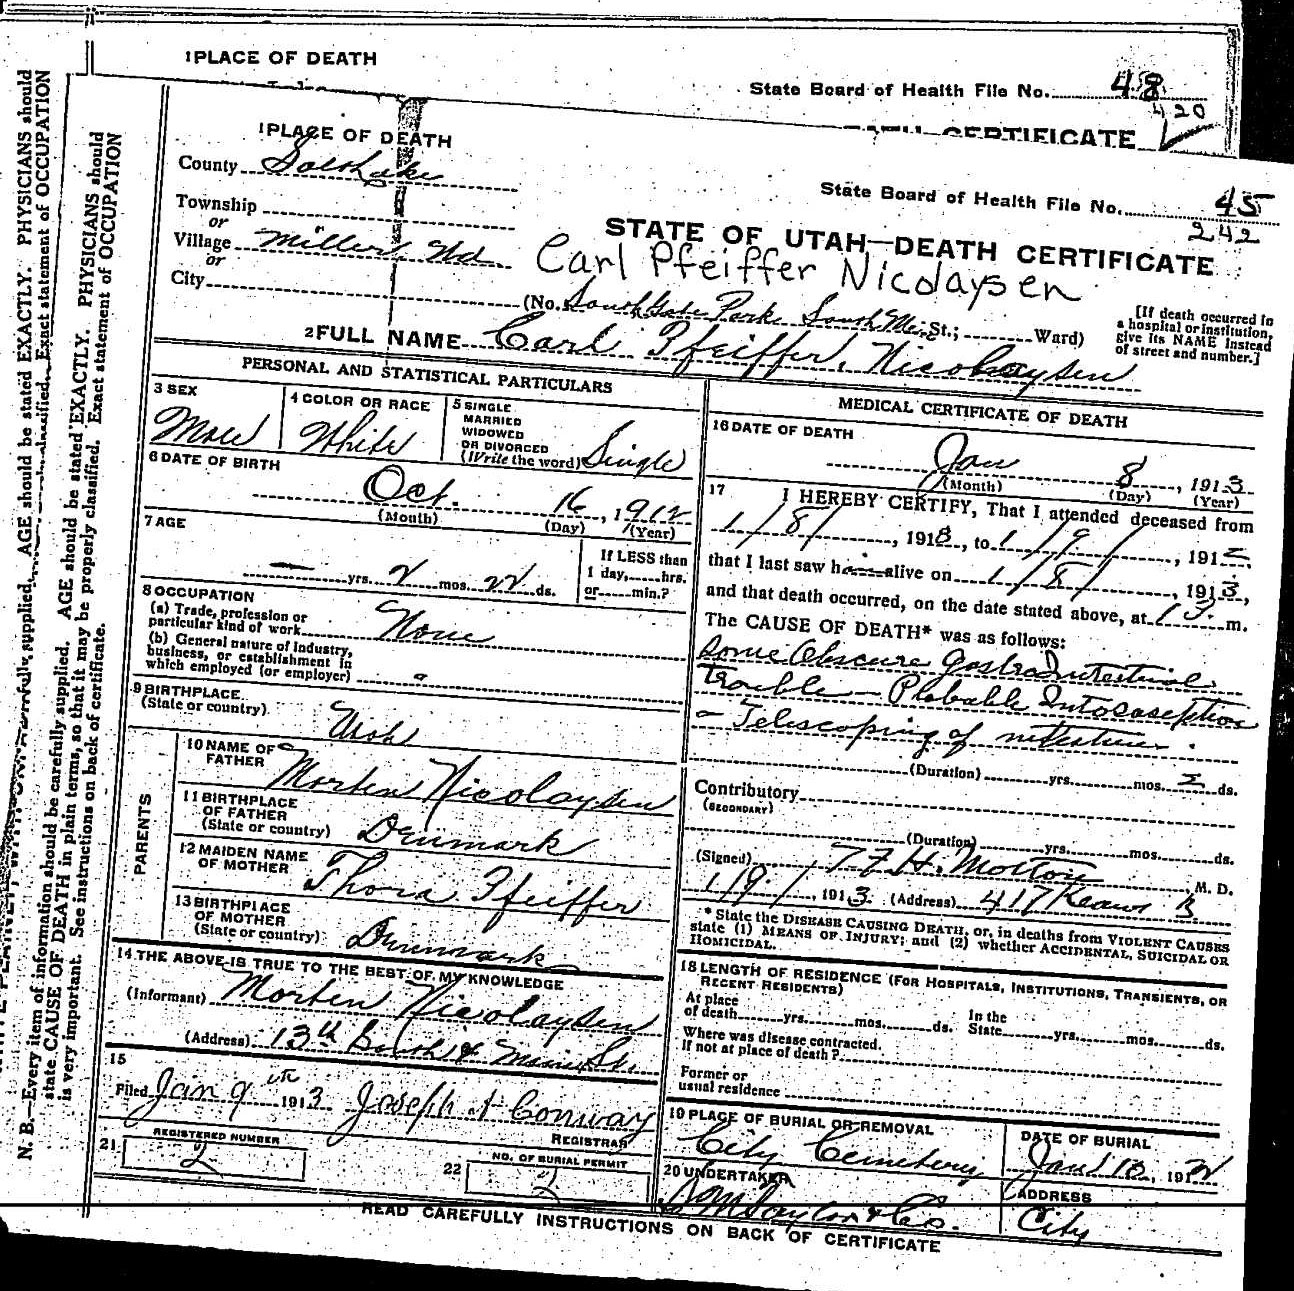 1 PLACE OF DEATH
State Board of Health File No. 48
420
CERTIFICATE
1 PLACE OF DEATH
County Salt Lake
State Board of Health File No. 45
242
Township
or
Village Miller Wd
or
City
STATE OF UTAH—DEATH CERTIFICATE
Carl Pfeiffer Nicolaysen
(No. South Gate Park South Main St.; Ward)
[If death occurred in a hospital or institution, give its NAME instead of street and number.]
2 FULL NAME Carl Pfeiffer, Nicolaysen
PERSONAL AND STATISTICAL PARTICULARS
3 SEX
Male
4 COLOR OR RACE
White
5 SINGLE
MARRIED
WIDOWED
OR DIVORCED
(Write the word) Single
6 DATE OF BIRTH
Oct. 16, 1912
(Month) (Day) (Year)
7 AGE
— yrs. 2 mos. 22 ds.
If LESS than
1 day, hrs.
or min.?
8 OCCUPATION
(a) Trade, profession or
particular kind of work None
(b) General nature of Industry,
business, or establishment in
which employed (or employer) "
9 BIRTHPLACE
(State or country)
Utah
PARENTS
10 NAME OF
FATHER Morten Nicolaysen
11 BIRTHPLACE
OF FATHER
(State or country) Denmark
12 MAIDEN NAME
OF MOTHER Thora Pfeiffer
13 BIRTHPLACE
OF MOTHER
(State or country) Denmark
14 THE ABOVE IS TRUE TO THE BEST OF MY KNOWLEDGE
(Informant) Morten Nicolaysen
(Address) 13th South & Main St.
15
Filed Jan 9th 1913 Joseph H Conway
REGISTRAR
21 REGISTERED NUMBER
2
22 NO. OF BURIAL PERMIT
2
MEDICAL CERTIFICATE OF DEATH
16 DATE OF DEATH
Jan 8, 1913
(Month) (Day) (Year)
17 I HEREBY CERTIFY, That I attended deceased from
1/8/, 1913, to 1/9/, 191
that I last saw h alive on 1/8/ 1913,
and that death occurred, on the date stated above, at m.
The CAUSE OF DEATH* was as follows:
Some Obscure Gastrointestinal
trouble — Plobable Intosaseption
— Telescoping of intestine.
(Duration) yrs. mos. 2 ds.
Contributory
(SECONDARY)
(Duration) yrs. mos. ds.
(Signed) H. Morton, M. D.
1/9/, 1913 (Address) 417 Kearns B
* State the DISEASE CAUSING DEATH, or, in deaths from VIOLENT CAUSES
state (1) MEANS OF INJURY; and (2) whether ACCIDENTAL, SUICIDAL OR
HOMICIDAL.
18 LENGTH OF RESIDENCE (FOR HOSPITALS, INSTITUTIONS, TRANSIENTS, OR
RECENT RESIDENTS)
At place
of death yrs. mos. ds.
In the
State yrs. mos. ds.
Where was disease contracted,
if not at place of death?
Former or
usual residence
19 PLACE OF BURIAL OR REMOVAL
City Cemetery
DATE OF BURIAL
Jan 10, 191
20 UNDERTAKER
S M Taylor & Co.
ADDRESS
City
READ CAREFULLY INSTRUCTIONS ON BACK OF CERTIFICATE
N. B.—Every item of information should be carefully supplied. AGE should be stated EXACTLY. PHYSICIANS should
state CAUSE OF DEATH in plain terms, so that it may be properly classified. Exact statement of OCCUPATION
is very important. See instructions on back of certificate.
supplied. AGE should be stated EXACTLY. PHYSICIANS should
classified. Exact statement of OCCUPATION